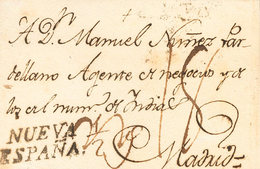 A Dn. Manuel Nuñez Par
dellano Agente de negocios y de
los del num.o de Indias
18
NUEVA
ESPAÑA.
Madrid